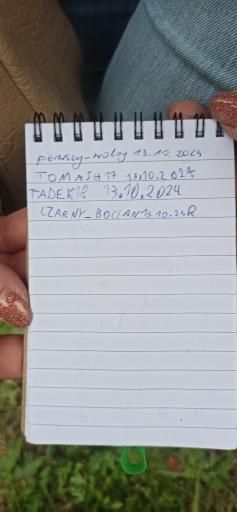 pierwszy-wolny 13.10.2024
TOMASH 17 13.10.2024
TADEK18 13.10.2024
CZARNY_BOCIAN 13.10.24R